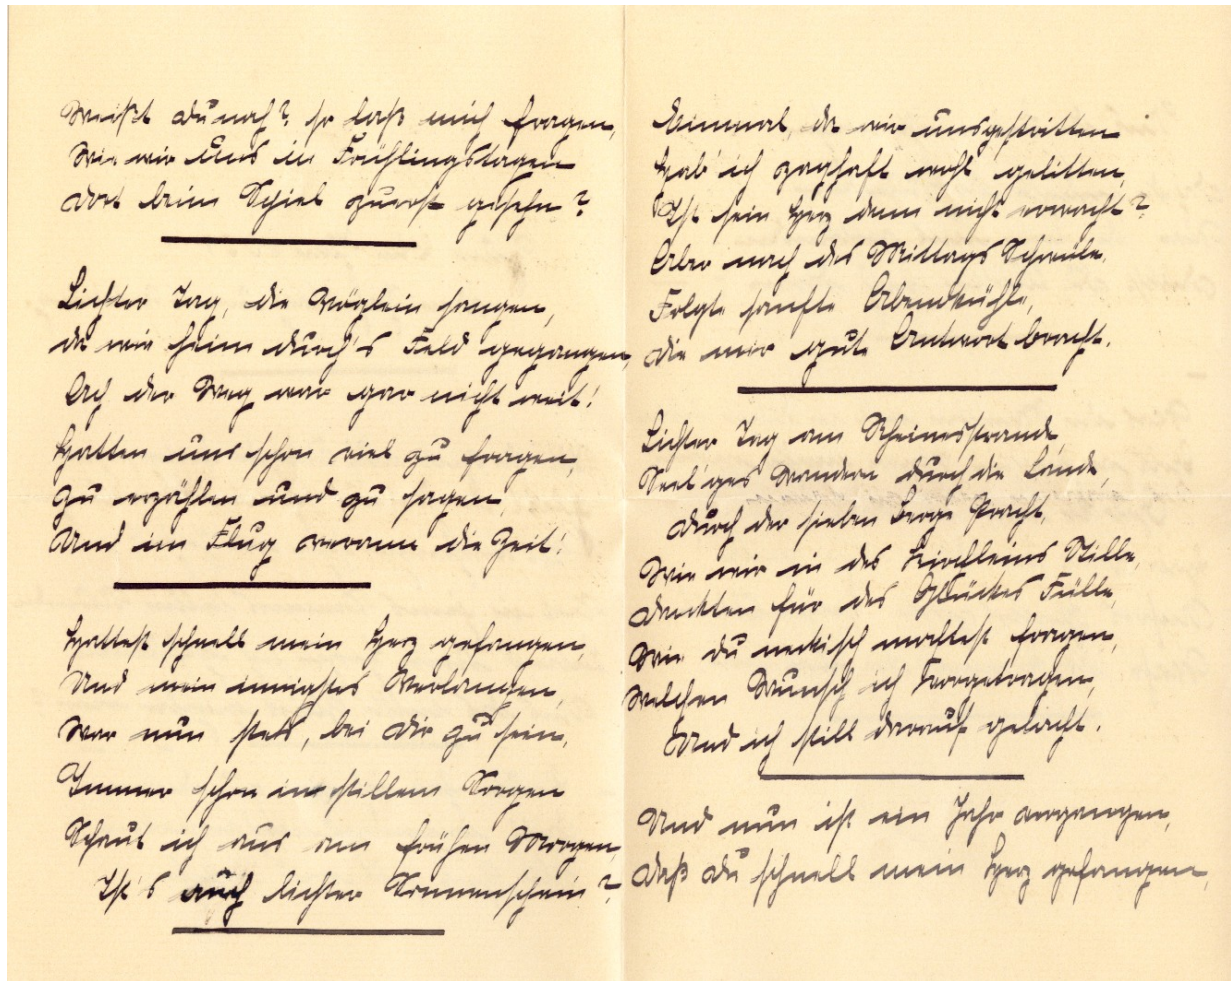 Weißt du noch? so laß mich fragen,
Wie wir Uns in Frühlingstagen
Dort beim Spiel zuerst gesehn?
Lichter Tag, die Vöglein sangen,
da wir heim durch's Feld gegangen,
Ach der Weg war gar nicht weit!
Hatten uns schon viel zu fragen,
Zu erzählen und zu sagen,
Und im Flug verrann die Zeit!
Hattest schnell mein Herz gefangen,
Und mein innigstes Verlangen,
War nun stets, bei dir zu sein,
Immer schon in stillem Sorgen
Schaut ich aus am frühen Morgen,
Ist's auch lichter Sonnenschein?
Einmal, da wir uns gestritten
Hab' ich zaghaft wohl gelitten,
Ist sein Herz denn nicht erwacht?
Aber nach des Mittags Schwüle,
Folgte sanfte Abendkühle,
die mir gute Antwort bracht.
Lichter Tag am Rheinesstrande,
Seel'ges Wandern durch die Lande,
durch der sieben Berge Pracht,
Wie wir in des Kirchleins Stille,
dankten für des Glückes Fülle,
Wie du neckisch wolltest fragen,
Welchen Wunsch ich vorgetragen,
Und ich still darauf gelacht.
Und nun ist ein Jahr vergangen,
daß du schnell mein Herz gefangen,